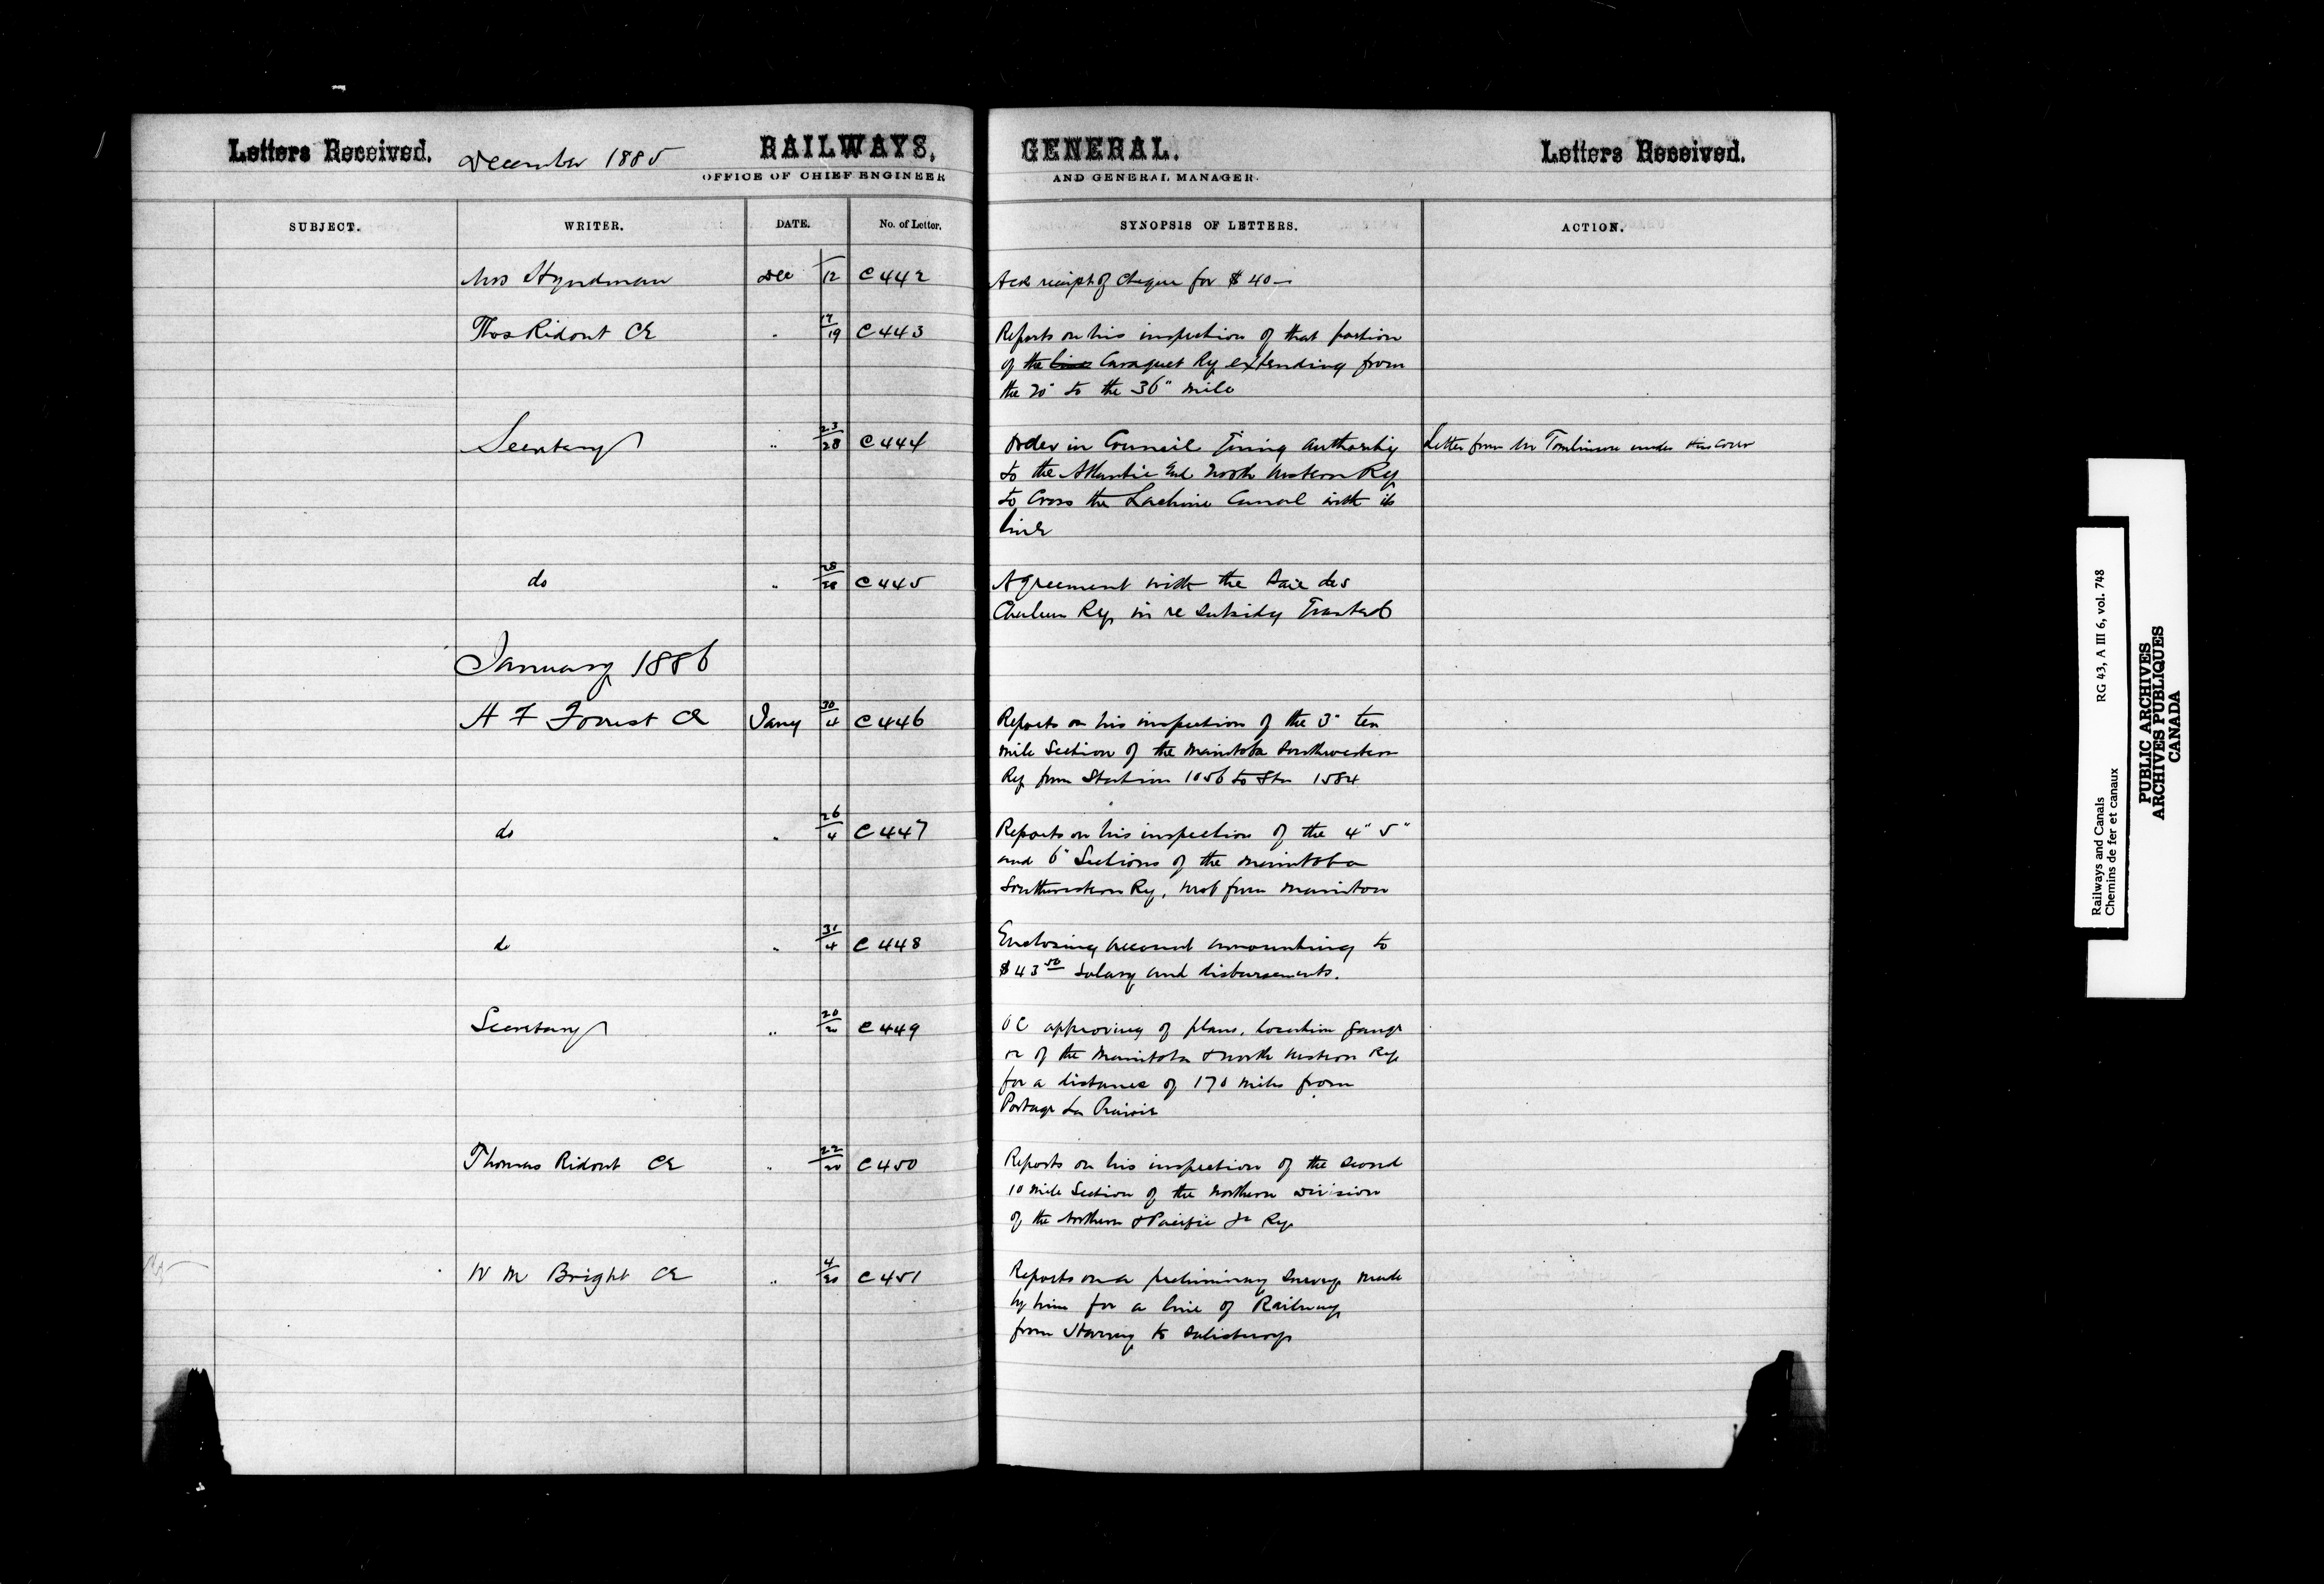 Letters Received. December 1885 RAILWAYS, GENERAL. Letters Received.
OFFICE OF CHIEF ENGINEER AND GENERAL MANAGER.
SUBJECT. WRITER. DATE. No. of Letter. SYNOPSIS OF LETTERS. ACTION.
Mrs Hyndman Dec /12 C442 Ack receipt of Cheque for $40—
Thos Ridout CE " 17/19 C443 Reports on his inspection of that portion
of the line Caraquet Ry extending from
the 20" to the 36" mile
Secretary " 23/28 C444 Order in Council giving authority Letter from Mr Tomlinson under this cover
to the Atlantic and North Western Ry
to Cross the Lachine Canal with its
line
do " 28/28 C445 Agreement with the Baie des
Chaleurs Ry in re subsidy granted
January 1886
A F Forrest CE Jany 30/4 C446 Reports on his inspection of the 3" ten
mile Section of the Manitoba Southwestern
Ry from Station 1056 to Stn 1584
do " 26/4 C447 Reports on his inspection of the 4" 5"
and 6" Sections of the Manitoba
Southwestern Ry, West from Manitou
do " 31/4 C448 Enclosing account amounting to
$43 50 Salary and disbursements.
Secretary " 20/20 C449 OC approving of plans, location gauge
re of the Manitoba & North Western Ry
for a distance of 170 miles from
Portage La Prairie
Thomas Ridout CE " 22/20 C450 Reports on his inspection of the second
10 mile Section of the Northern Division
of the Northern & Pacific Jn Ry
W M Bright CE " 4/20 C451 Reports on a preliminary Survey made
by him for a line of Railway
from Harvey to Salisbury
Railways and Canals RG 43, A III 6, vol. 748
Chemins de fer et canaux
PUBLIC ARCHIVES
ARCHIVES PUBLIQUES
CANADA